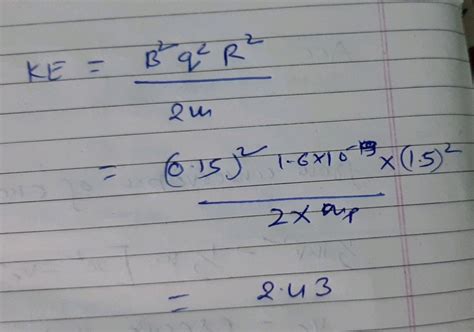 KE = B² q² R²
2m
= (0.15)² 1.6×10⁻¹⁹ × (1.5)²
2×
= 2.43